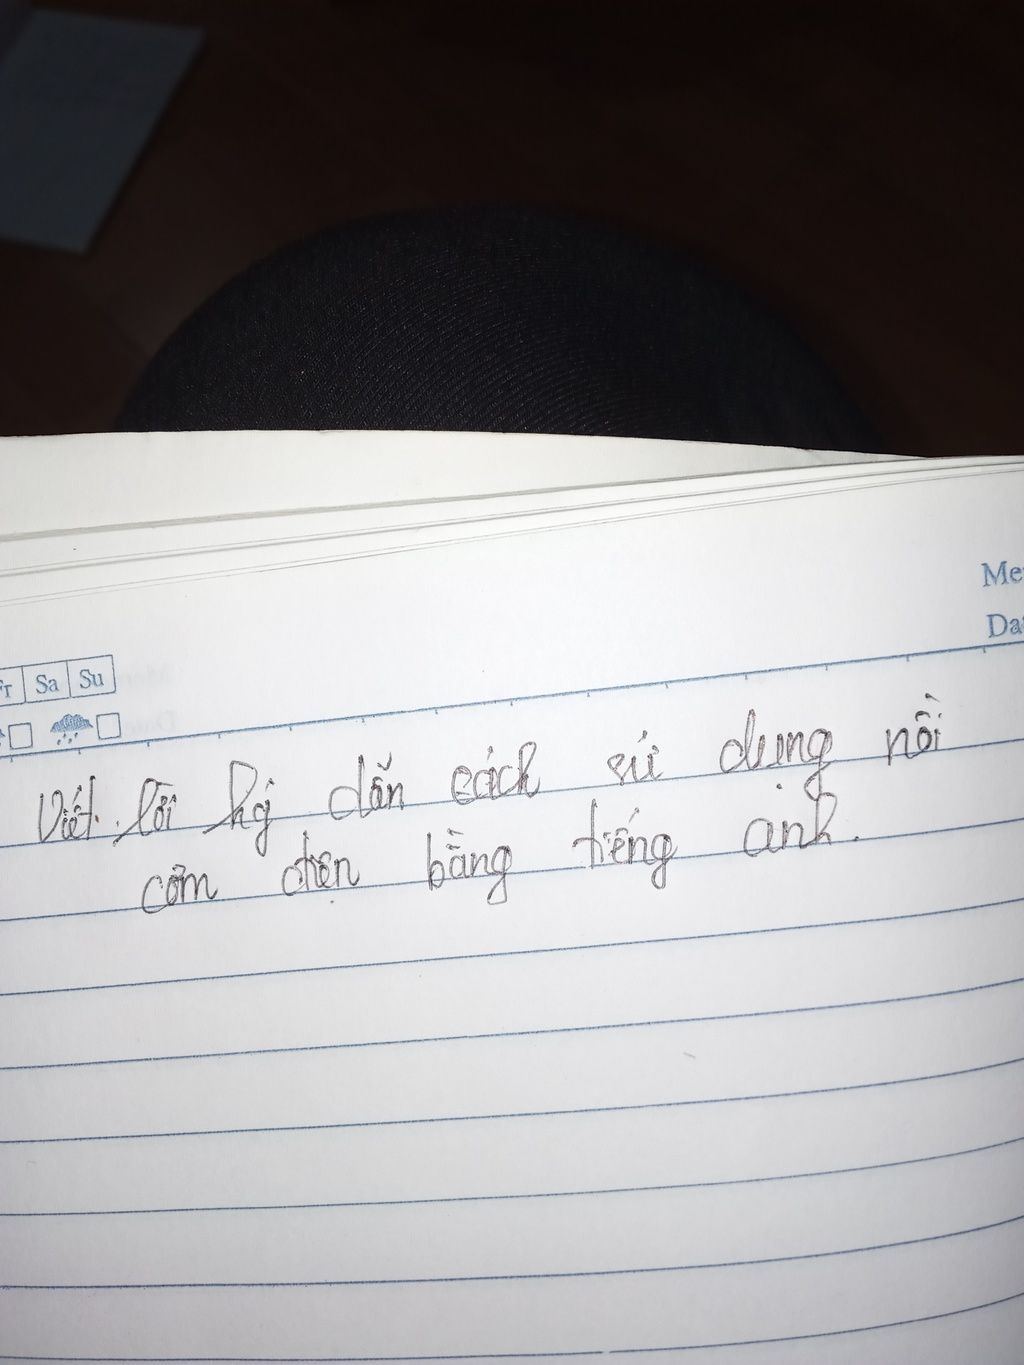 Me
Da
Fr Sa Su
Viết lời hg dẫn cách sử dụng nồi
cơm điện bằng tiếng anh.